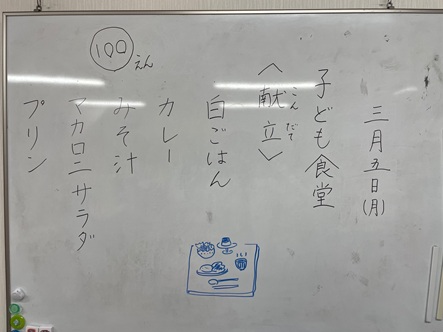 三月五日(月)
子ども食堂
〈献立〉
こんだて
白ごはん
カレー
みそ汁
マカロニサラダ
プリン
100えん